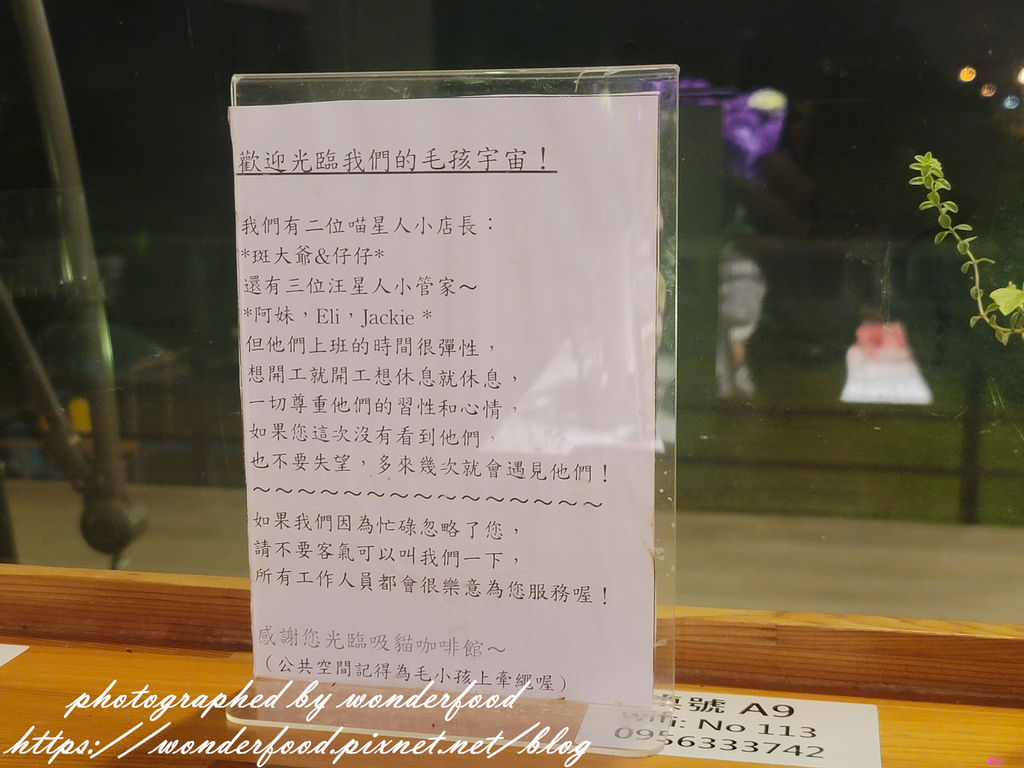 歡迎光臨我們的毛孩宇宙！
我們有二位喵星人小店長：
*斑大爺&仔仔*
還有三位汪星人小管家～
*阿妹，Eli，Jackie *
但他們上班的時間很彈性，
想開工就開工想休息就休息，
一切尊重他們的習性和心情，
如果您這次沒有看到他們，
也不要失望，多來幾次就會遇見他們！
～～～～～～～～～～～～～～～～
如果我們因為忙碌忽略了您，
請不要客氣可以叫我們一下，
所有工作人員都會很樂意為您服務喔！
感謝您光臨吸貓咖啡館～
（公共空間記得為毛小孩上牽繩喔）
桌號 A9
Wifi: No 113
0956333742
photographed by wonderfood
https://wonderfood.pixnet.net/blog